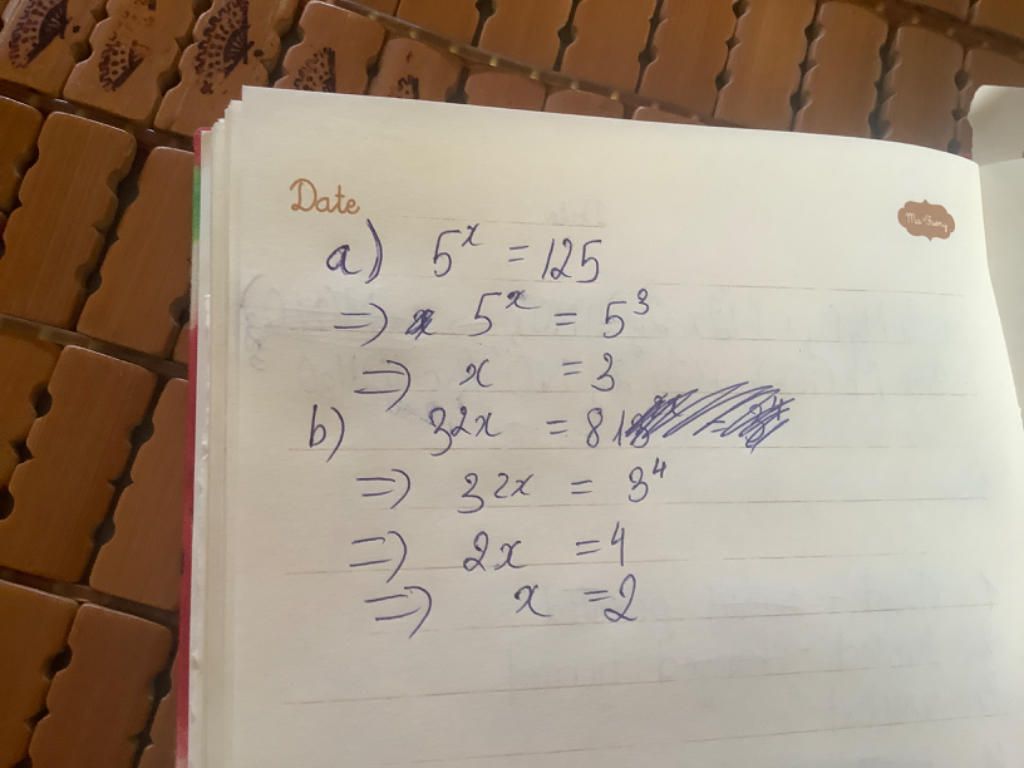 Date
a) 5^x = 125
=> 5^x = 5^3
=> x = 3
b) 32x = 81
=> 32x = 3^4
=> 2x = 4
=> x = 2